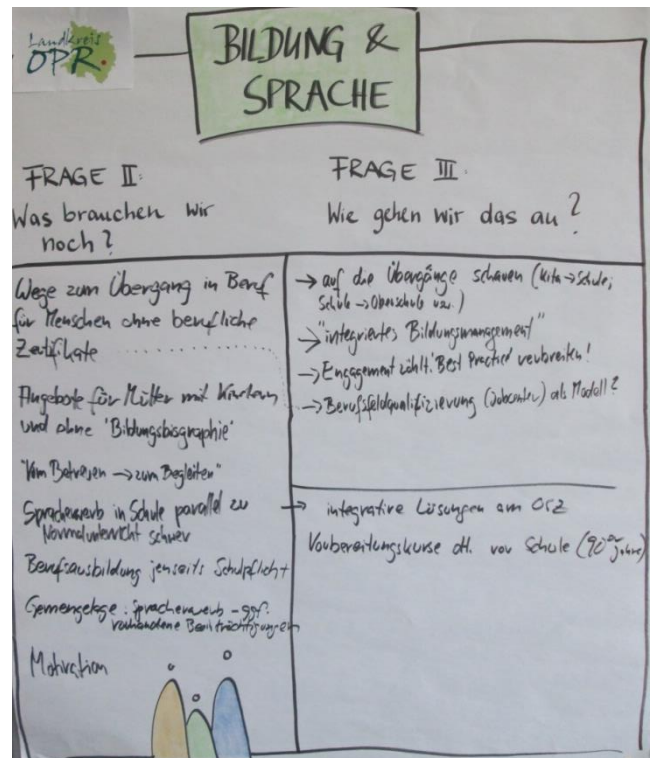 Landkreis
OPR.
BILDUNG &
SPRACHE
FRAGE II:
Was brauchen wir
noch?
Wege zum Übergang in Beruf
für Menschen ohne berufliche
Zertifikate
Angebote für Mütter mit Kindern
und ohne 'Bildungsbiographie'
"Vom Betreuen → zum Begleiten"
Spracherwerb in Schule parallel zu
Normalunterricht schwer
Berufsausbildung jenseits Schulpflicht
Gemengelage: Spracherwerb - ggf.
vorhandene Beeinträchtigungen
Motivation
FRAGE III.
Wie gehen wir das an?
→ auf die Übergänge schauen (Kita → Schule,
Schule → Oberschule usw.)
→ "integriertes Bildungsmanagement"
→ Engagement zählt! 'Best Practice' verbreiten!
→ Berufsfeldqualifizierung (Jobcenter) als Modell?
→ integrative Lösungen am OSZ
Vorbereitungskurse dt. vor Schule (90er Jahre)